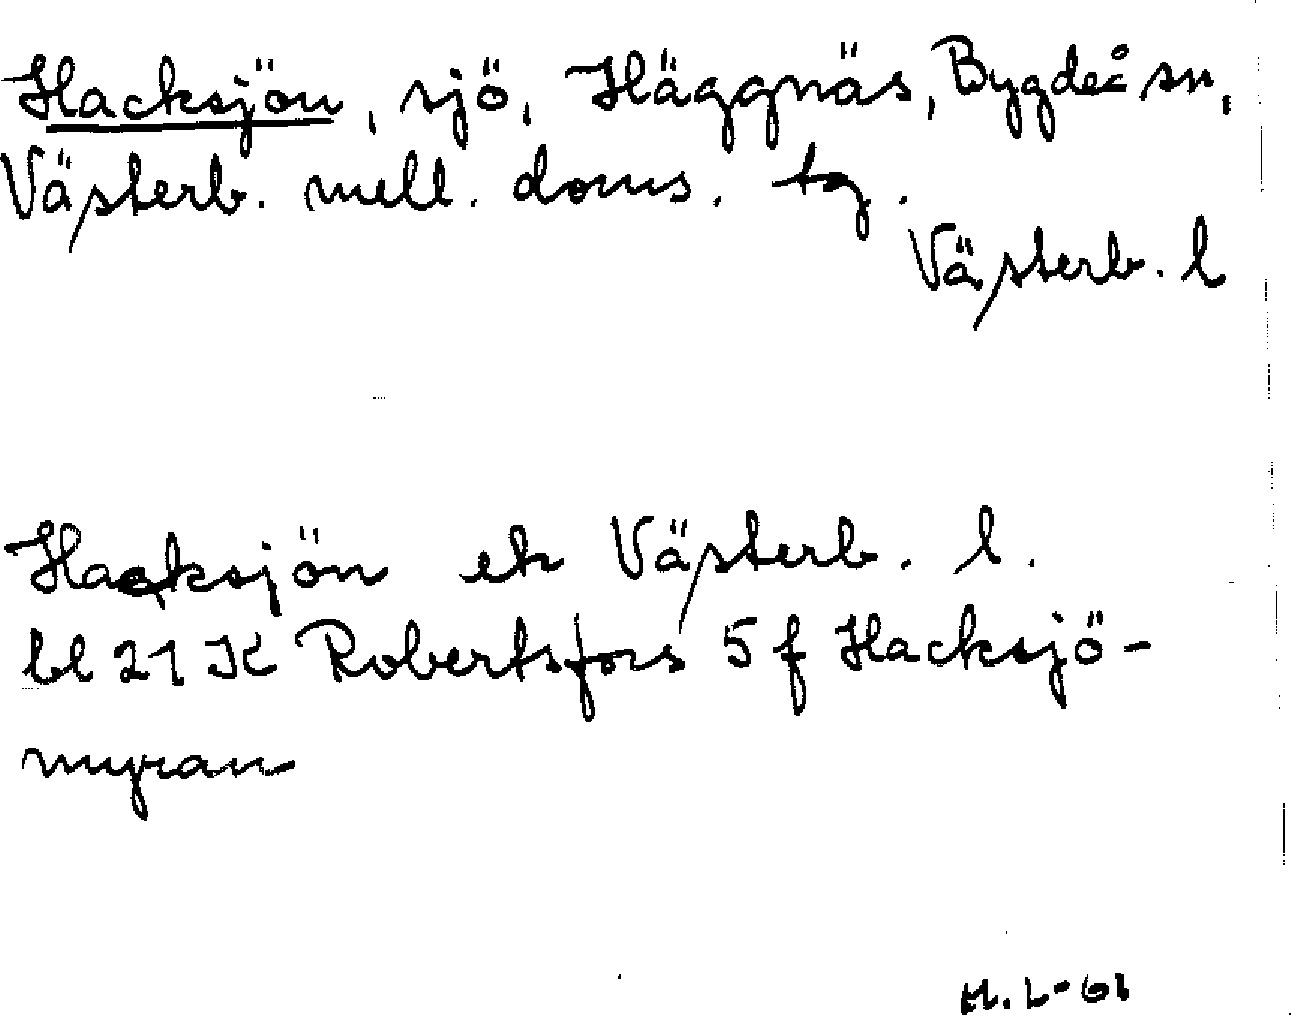 Hacksjön, sjö, Häggnäs, Bygdeå sn,
Västerb. mell. doms. tg.
Västerb. l
Hacksjön ek Västerb. l.
bl 21 K Robertsfors 5 f Hacksjö-
myran
H.L-61